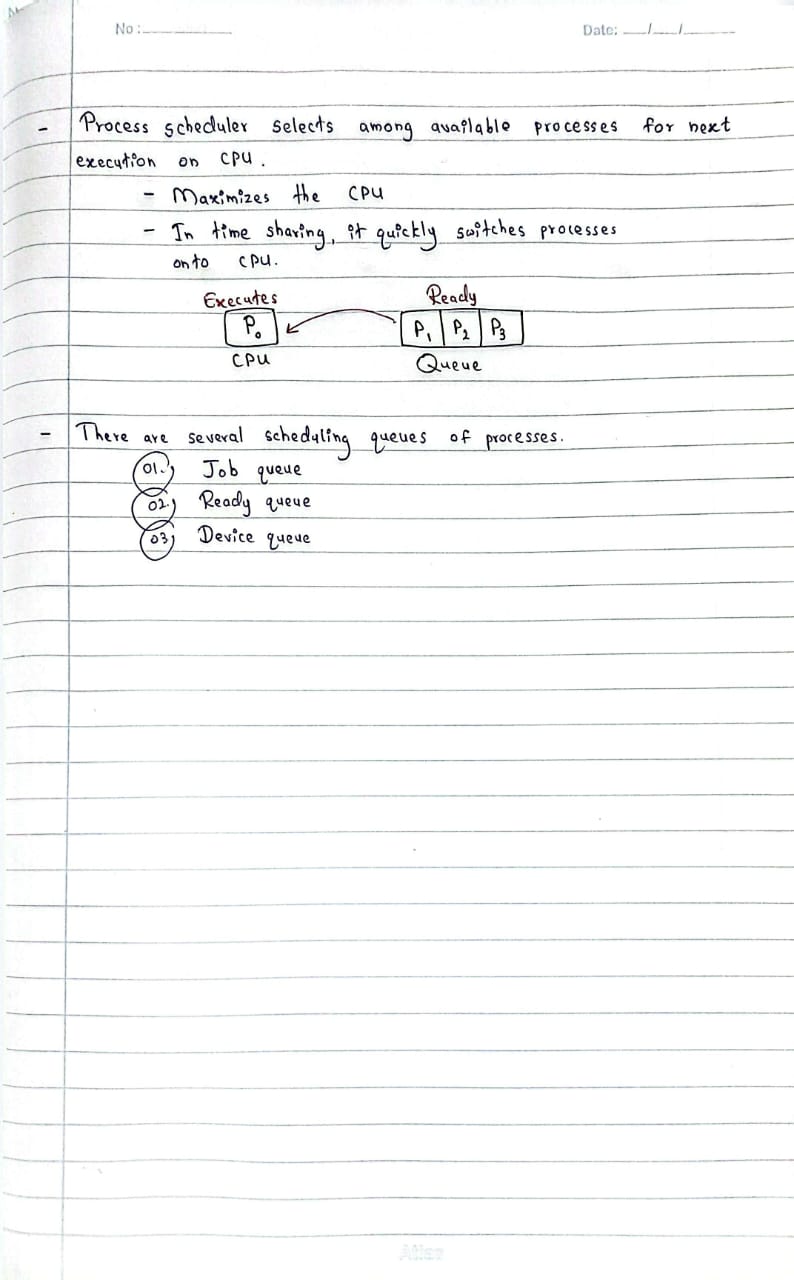 No : Date: / /
- Process scheduler selects among available processes for next
execution on CPU.
- Maximizes the CPU
- In time sharing, it quickly switches processes
onto CPU.
Executes Ready
P₀ P₁ P₂ P₃
CPU Queue
- There are several scheduling queues of processes.
01.) Job queue
02.) Ready queue
03) Device queue
Atlas